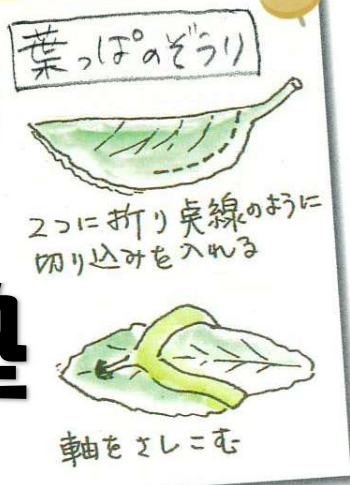 葉っぱのぞうり
2つに折り点線のように
切り込みを入れる
軸をさしこむ